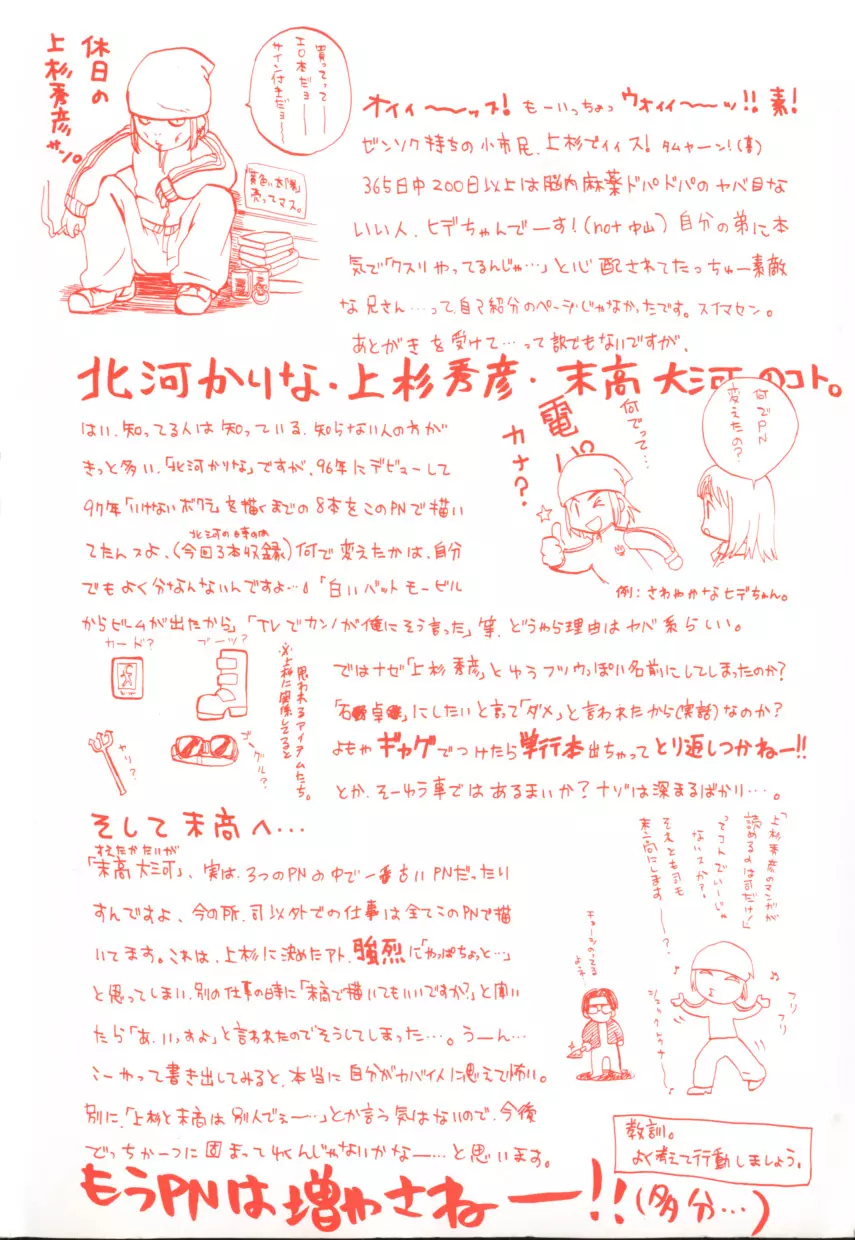 休日の
上杉秀彦
買ってって
エロ本だョ
サイン付きだョ
売ってマス。
オイィ〜〜ッス! もーいっちょっ ウオィィ〜〜ッ!! 素!
ゼンソク持ちの小市民、上杉でイイス! タムャーン!
365日中200日以上は脳内麻薬ドパドパのヤバ目な
いい人、ヒデちゃんでーす!(not 中山) 自分の弟に本
気で「クスリやってるんじゃ…」と心配されてたっちゅー素敵
な兄さん……って自己紹分のページじゃなかったです。スイマセン。
あとがきを受けて…って訳でもないですが、
北河かりな・上杉秀彦・末高大河のコト。
何でPN
変えたの?
何でって…
電パ
カナ?
例:さわやかなヒデちゃん。
はい、知ってる人は知っている、知らない人の方が
きっと多い、「北河かりな」ですが、96年にデビューして
97年「いけないボクラ」を描くまでの8本をこのPNで描い
てたんスよ、(今回3本収録)何で変えたかは、自分
北河の時のは
でもよく分なんないんですよ…。「白いバットモービル
からビームが出たから」「TVでカンノが俺にそう言った」等、どうやら理由はヤバ系らしい。
カード?
ブーツ?
ヤリ?
ゴーグル?
※上杉に関係してると
思われるアイテムたち。
ではナゼ「上杉秀彦」とゆうフツウっぽい名前にしてしまったのか?
にしたいと言って「ダメ」と言われたから(実話)なのか?
よもやギャグでつけたら単行本出ちゃってとり返しつかねー!!
とか、そーゆう事ではあるまいか? ナゾは深まるばかり…。
そして末高へ…
すえたかたいが
「末高大河」、実は、3つのPNの中で一番古いPNだったり
すんですよ、今の所、司以外での仕事は全てこのPNで描
いてます。これは、上杉に決めたアト、強烈に「やっぱちょっと…」
と思ってしまい、別の仕事の時に「末高で描いてもいいですか?」と聞い
たら「あ、いっすよ」と言われたのでそうしてしまった…。うーん…
こーやって書き出してみると、本当に自分がヤバイ人に思えて怖い。
別に、「上杉と末高は別人でぇ〜…」とか言う気はないので、今後
でっちか一つに固まってゆくんじゃないかなー…と思います。
「上杉秀彦のマンガが
読めるのは司だけ!」
ってコトでいーじゃ
ないスか?
それとも司も
末高にします――?
チョーシのってる
フリ
フリ
教訓。
よく考えて行動しましょう。
もうPNは増やさねー!!(多分…)